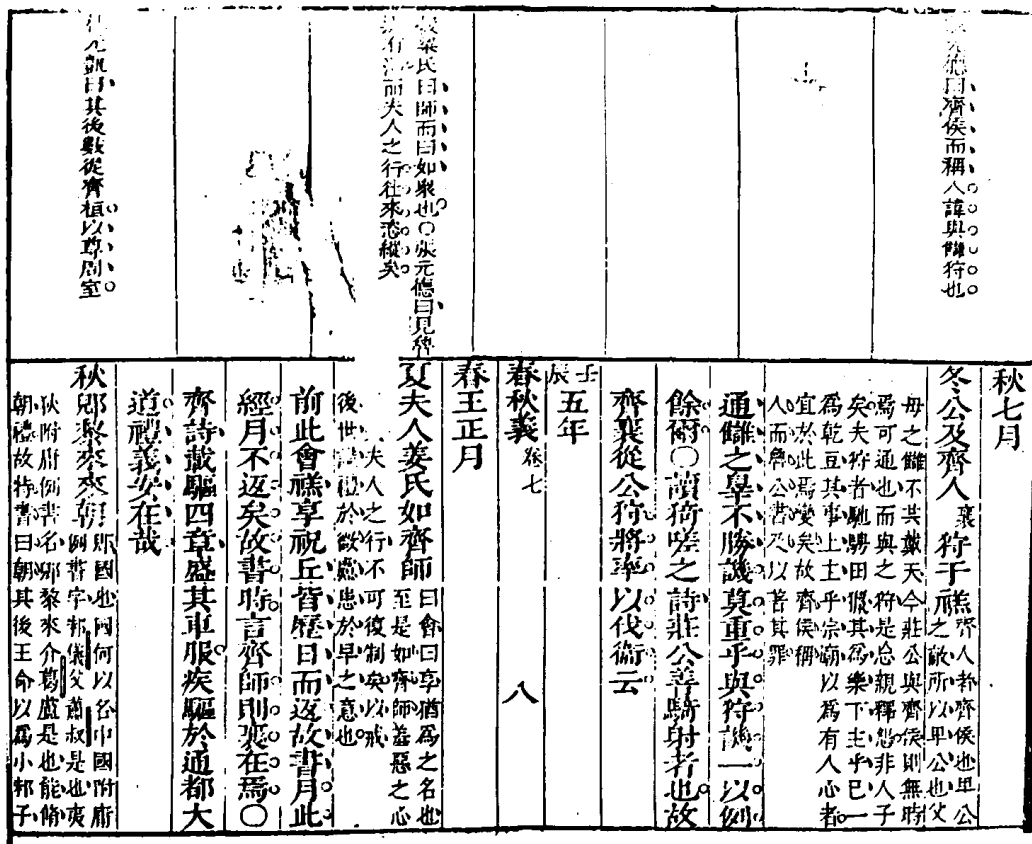 元德曰齊侯而稱人諱與讎狩也
梁氏曰師而曰如眾也○張元德曰見齊
而夫人之行往來恣縱矣
元凱曰其後數從齊桓以尊周室
秋七月
冬公及齊人襄狩于禚齊人者齊侯也卑公
之敵所以卑公也父
母之讎不共戴天今莊公與齊侯則無時
焉可通也而與之狩是忘親釋怨非人子
矣夫狩者馳騁田獵其為樂下主乎己一
為乾豆其事上主乎宗廟以為有人心者
宜於此焉變矣故齊侯稱
人而魯公書及以著其罪
通讎之辠不勝譏莫重乎與狩譏一以例
餘爾○讀猗嗟之詩莊公善騎射者也故
齊襄從公狩將率以伐衞云
壬辰五年
春秋義 卷七 八
春王正月
夏夫人姜氏如齊師曰會曰享猶為之名也
至是如齊師羞惡之心
夫人之行不可復制矣以戒
後世謹禮於微慮患於早之意也
前此會禚享祝丘皆歷日而返故書月此
經月不返矣故書時言齊師則襄在焉○
齊詩載驅四章盛其車服疾驅於通都大
道禮義安在哉
秋郳黎來來朝郳國也國何以名中國附庸
例書字邾儀父蕭叔是也夷
狄附庸例書名郳黎來介葛盧是也能脩
朝禮故特書曰朝其後王命以為小邾子